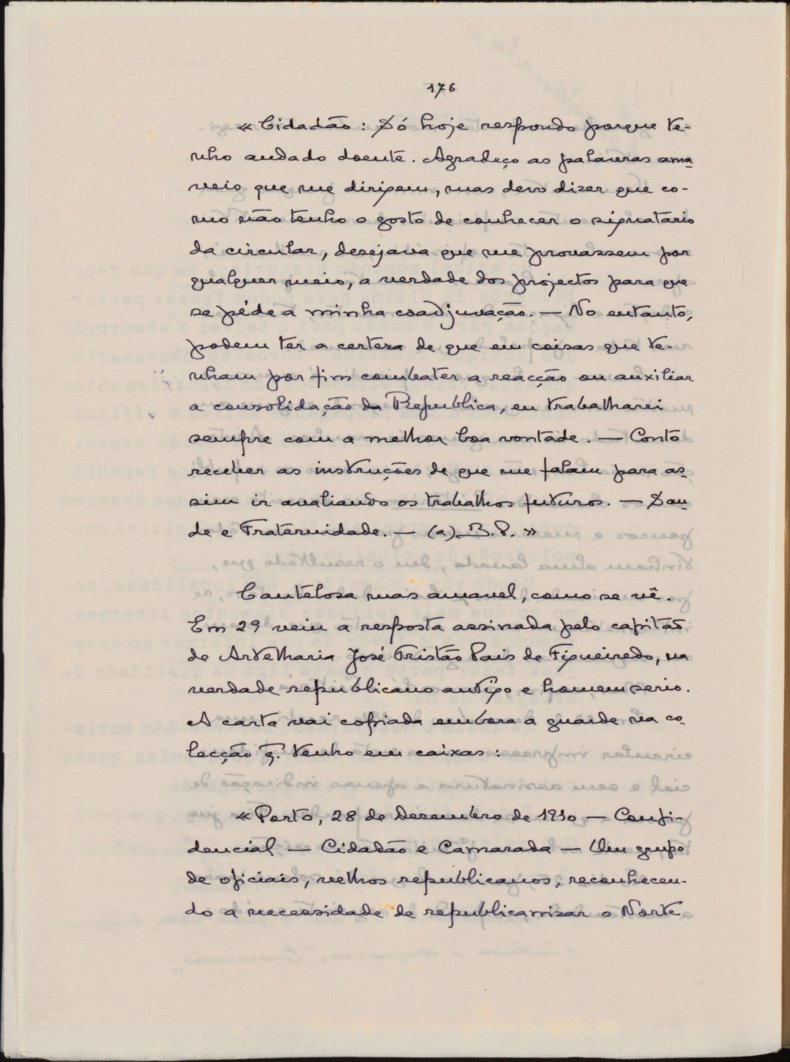 176
« Cidadão : Só hoje respondo porque te-
nho andado doente. Agradeço as palavras ama-
veis que me dirigem, mas devo dizer que co-
mo não tenho o gosto de conhecer o signatario
da circular, desejava que me provassem por
qualquer meio, a verdade dos projectos para que
se péde a minha coadjuvação. — No entanto,
podem ter a certeza de que em coisas que te-
nham por fim combater a reacção ou auxiliar
a consolidação da Republica, eu trabalharei
sempre com a melhor boa vontade. — Conto
receber as instruções de que me falam para as-
sim ir avaliando os trabalhos futuros. — Sau-
de e Fraternidade. — (a) B. P. »
Cautelosa mas amavel, como se vê.
Em 29 veiu a resposta assinada pelo capitão
de Artelharia José Tristão Pais de Figueiredo, na
verdade republicano antigo e homem serio.
A carta vai cofiada embora a guarde na co-
lecção q. tenho em caixas :
« Porto, 28 de Dezembro de 1910 — Confi-
dencial — Cidadão e Camarada — Um grupo
de oficiais, velhos republicanos, reconhecen-
do a necessidade de republicanisar o Norte